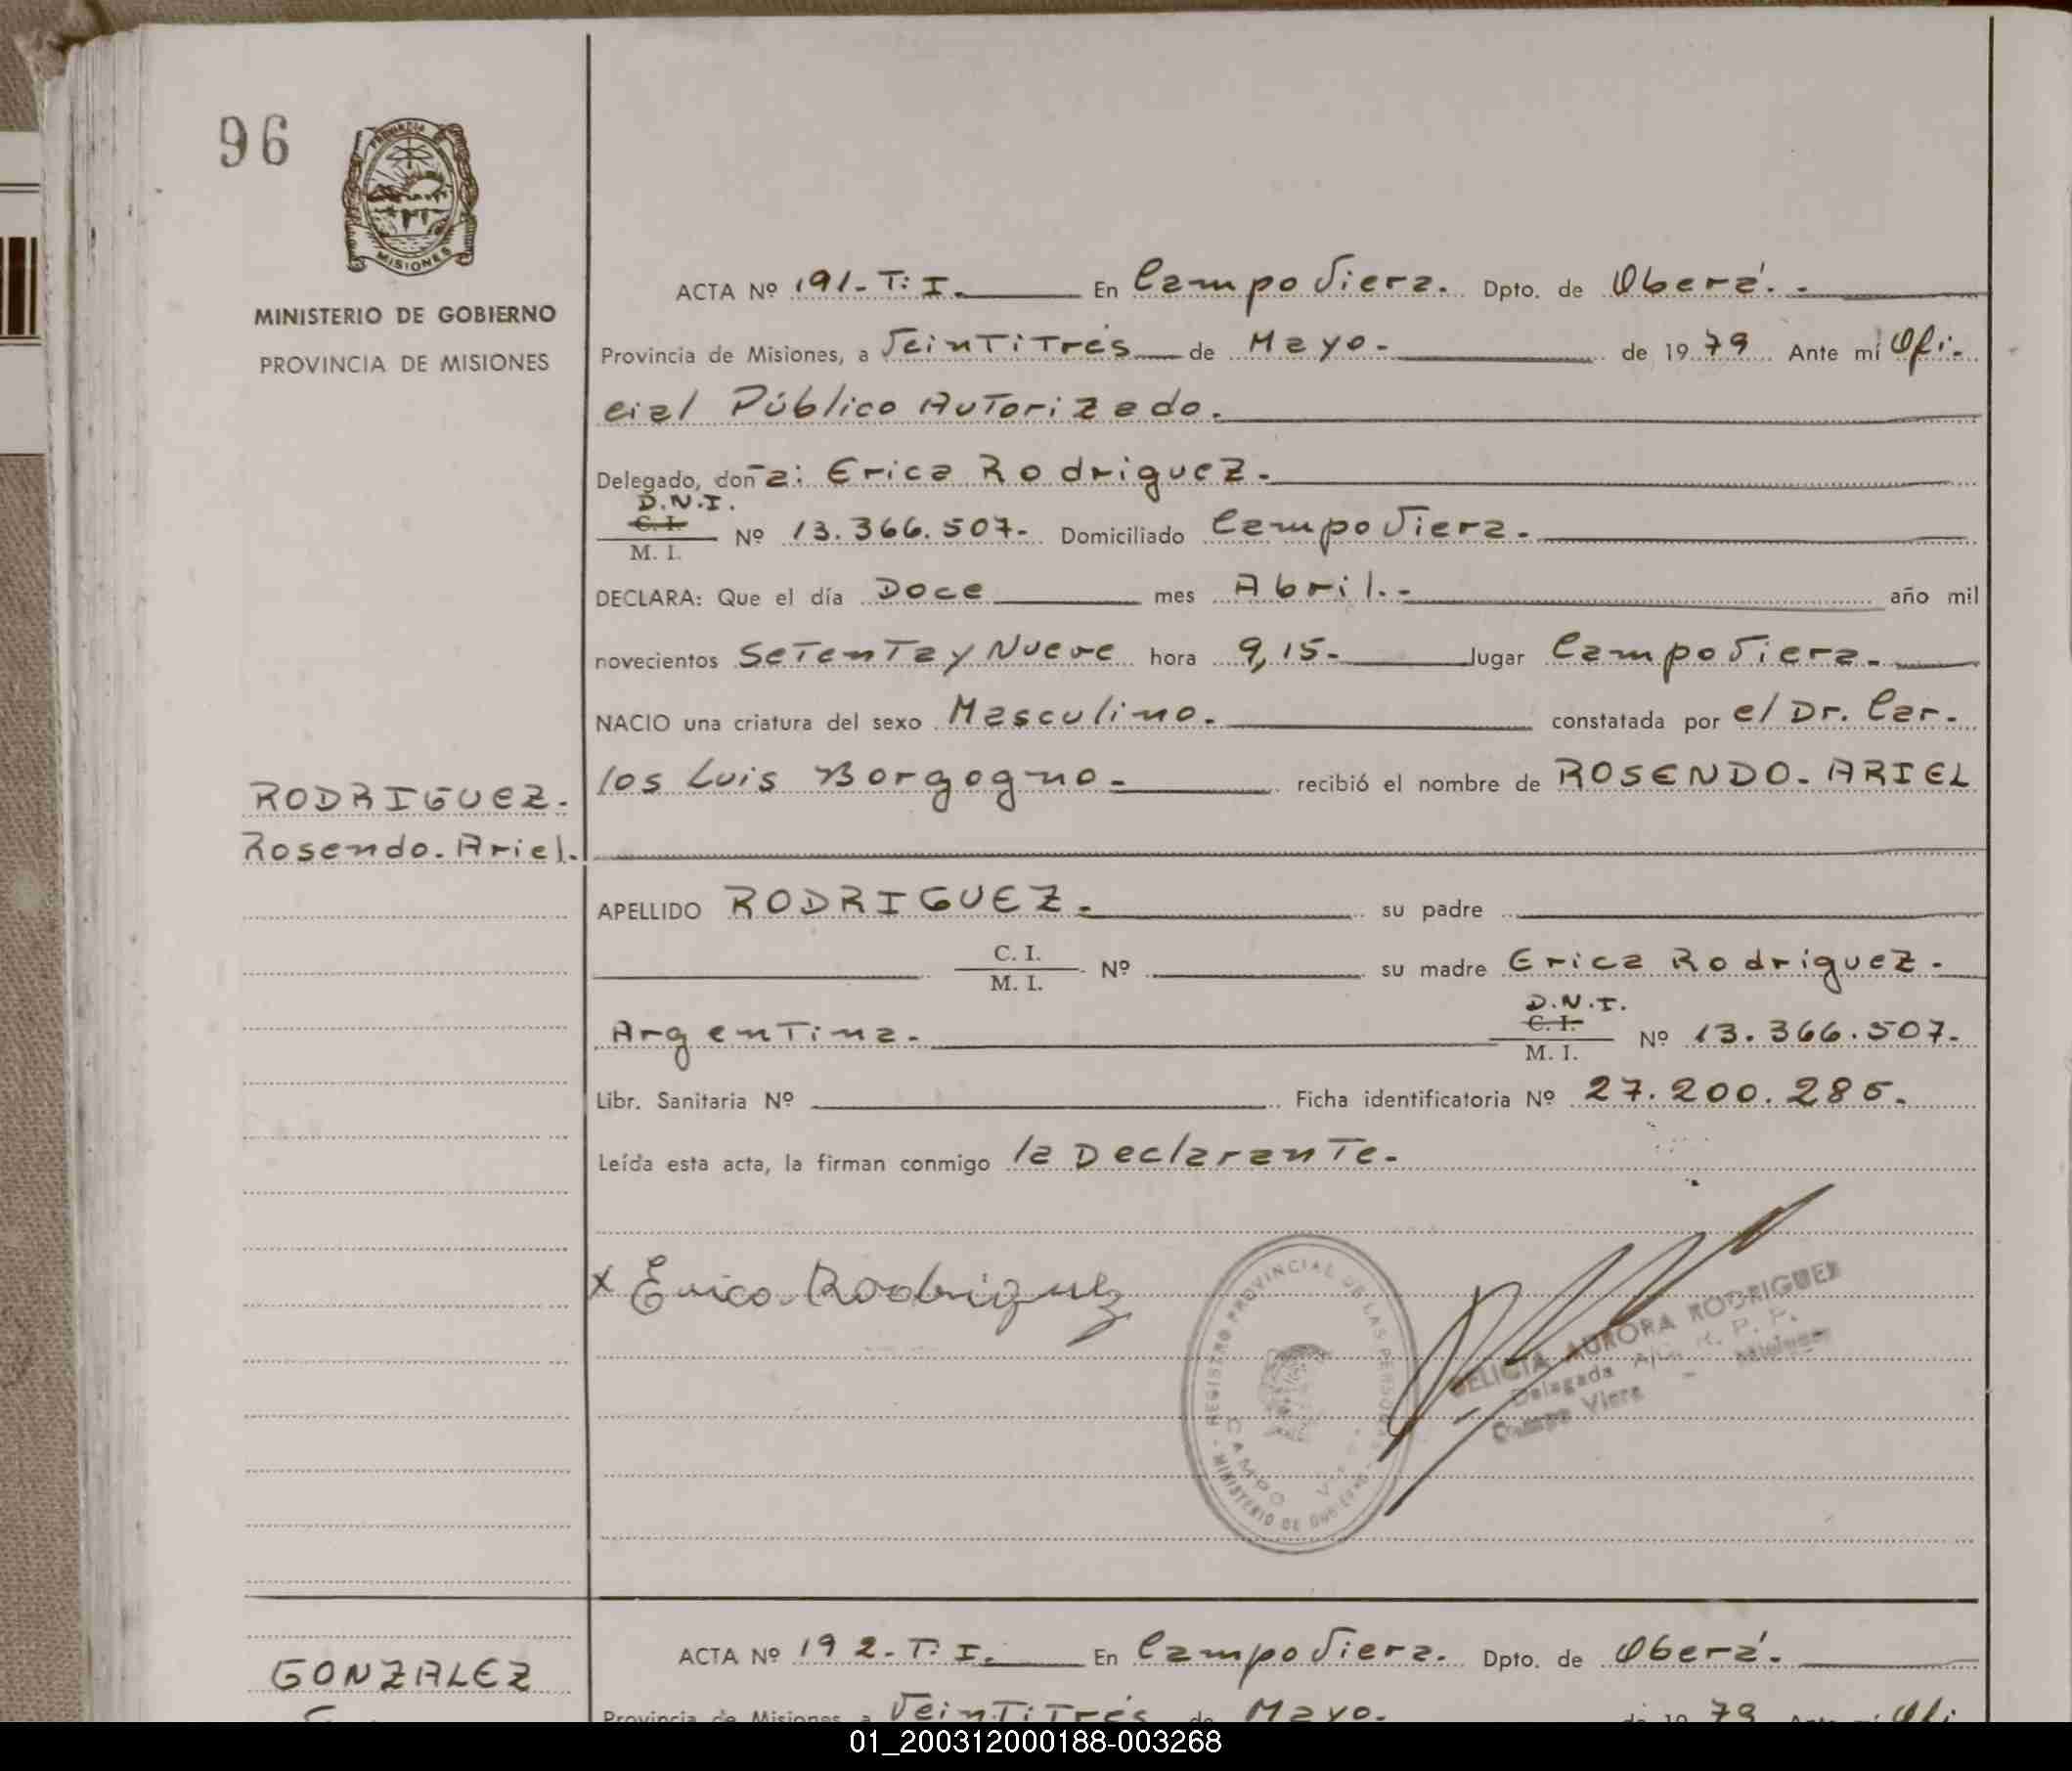 96
PROVINCIA
MISIONES
MINISTERIO DE GOBIERNO
PROVINCIA DE MISIONES
ACTA Nº 191-T: I. En Campo Viera. Dpto. de Oberá.-
Provincia de Misiones, a Veintitrés de Mayo- de 1979 Ante mí Ofi-
cial Público Autorizado.
Delegado, don~a: Erica Rodriguez.
D.N.I.
C. I.
M. I. Nº 13.366.507- Domiciliado Campo Viera.
DECLARA: Que el día Doce mes Abril.- año mil
novecientos Setenta y Nueve hora 9,15- Jugar Campo Viera.
NACIO una criatura del sexo Masculino. constatada por el Dr. Car-
los Luis Borgogno- recibió el nombre de ROSENDO-ARIEL
RODRIGUEZ.
Rosendo. Ariel.
APELLIDO RODRIGUEZ. su padre
C. I.
M. I. Nº su madre Erica Rodriguez.
Argentina.
D.N.I.
C. I.
M. I. Nº 13.366.507-
Libr. Sanitaria Nº Ficha identificatoria Nº 27.200.285.
Leída esta acta, la firman conmigo la Declarante.
x Erica Rodriguez
REGISTRO PROVINCIAL DE LAS PERSONAS
MINISTERIO DE GOBIERNO
CAMPO
DELICIA AURORA RODRIGUEZ
Delegada R. P. P.
Campo Viera - Misiones
GONZALEZ
ACTA Nº 192-T: I. En Campo Viera. Dpto. de Oberá.
Provincia de Misiones a Veintitrés de Mayo- de 1979 Ante mí Ofi-
01_200312000188-003268